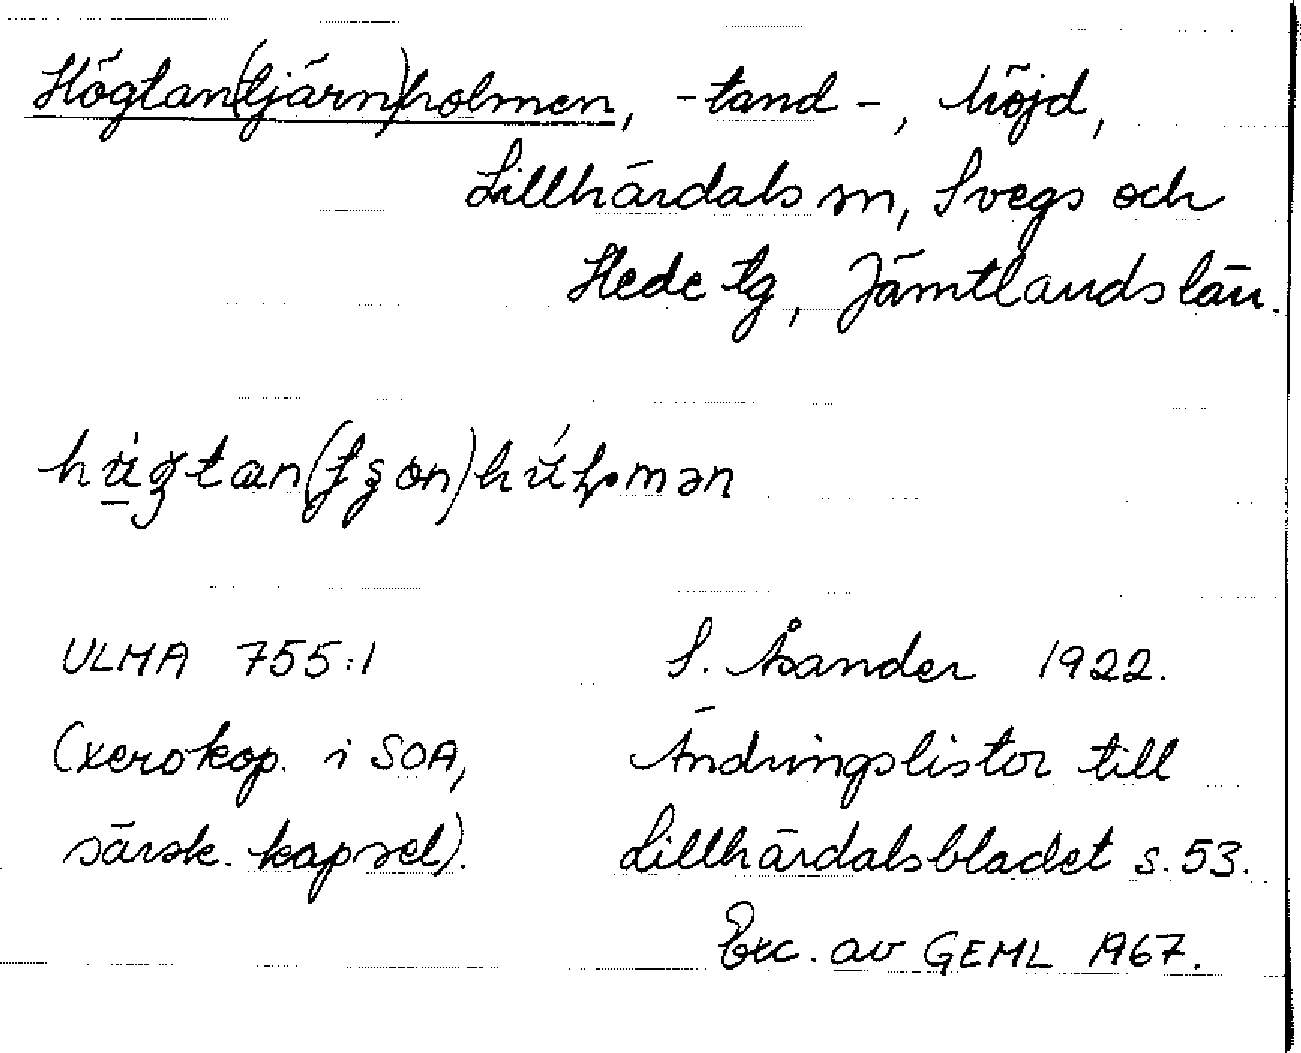 Högtan(tjärn)holmen, -tand-, höjd,
Lillhärdals sn, Svegs och
Hede tg, Jämtlands län.
ULMA 755:1
S. Åsander 1922.
(xerokop. i SOA,
Ändringslistor till
särsk. kapsel).
Lillhärdalsbladet s. 53.
Exc. av GEML 1967.